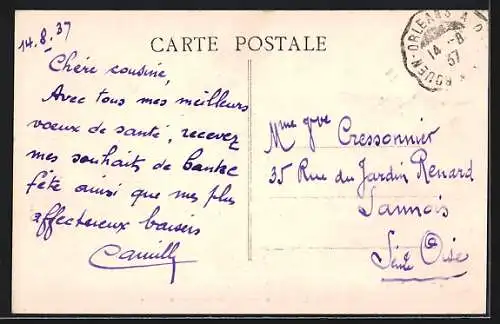 14.8.37
CARTE POSTALE
ORLEANS A
ROUEN
14-8
37
Chère cousine,
Avec tous mes meilleurs
voeux de santé, recevez
mes souhaits de bonne
fête ainsi que mes plus
affectueux baisers
Camille
Mme Gve Cressonnier
35 Rue du Jardin Renard
Sannois
Seine Oise